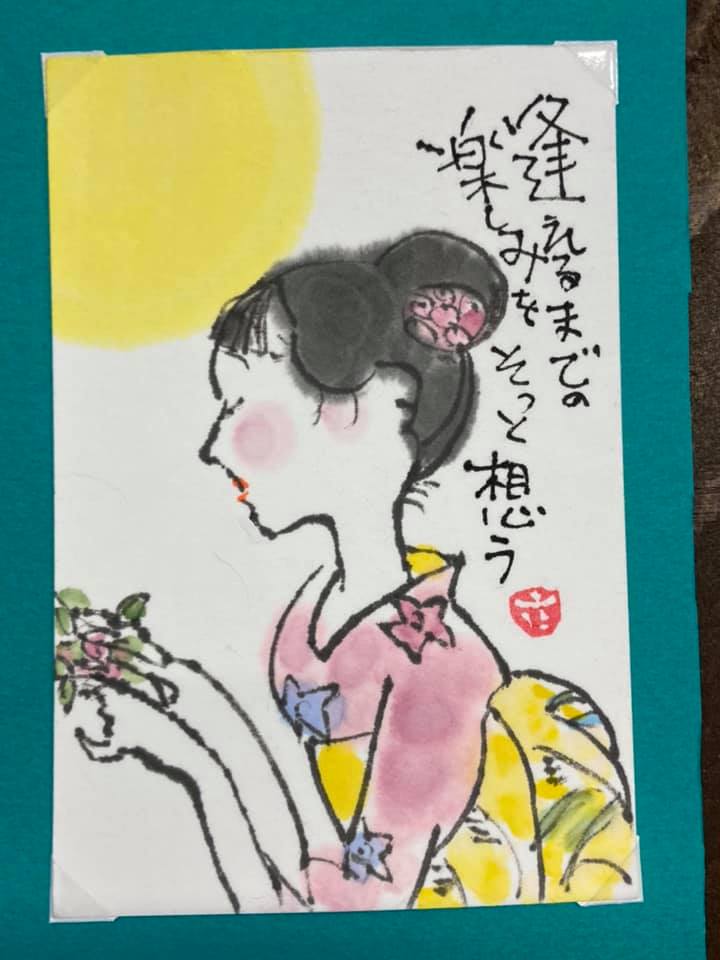 逢えるまでの
楽しみを そっと 想う